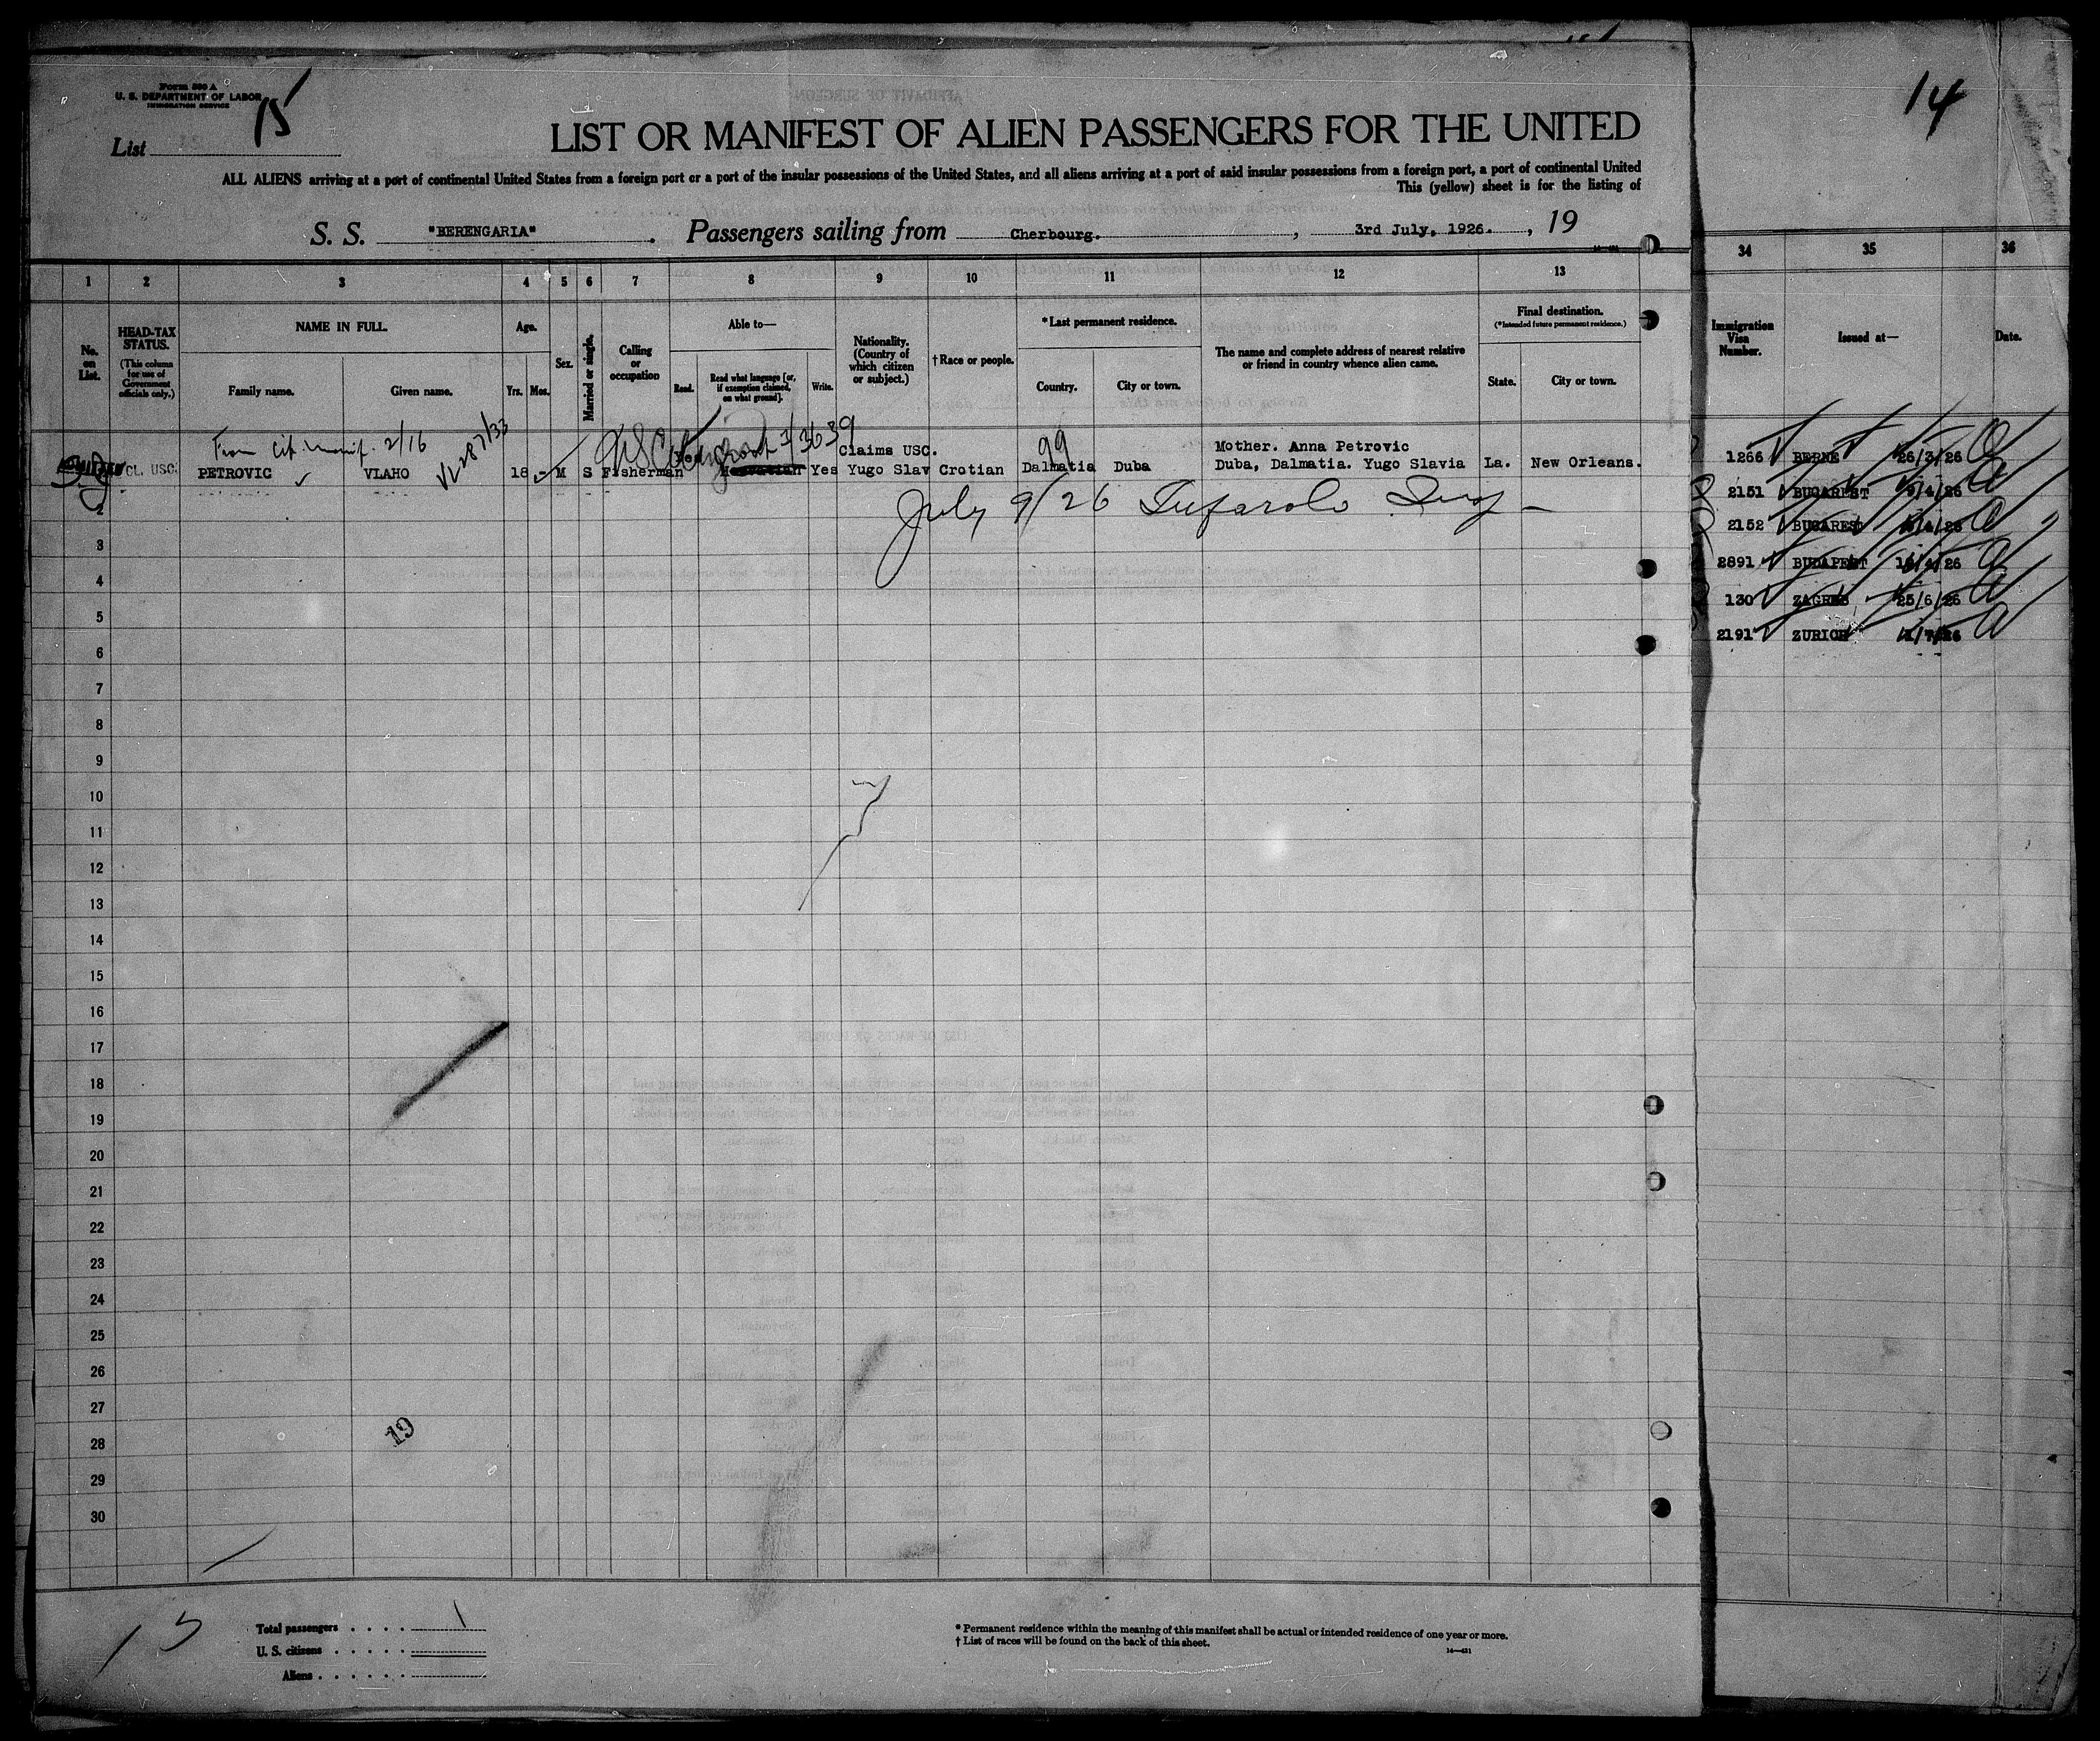 Form 500 A
U. S. DEPARTMENT OF LABOR
IMMIGRATION SERVICE
15
14
List
LIST OR MANIFEST OF ALIEN PASSENGERS FOR THE UNITED
ALL ALIENS arriving at a port of continental United States from a foreign port or a port of the insular possessions of the United States, and all aliens arriving at a port of said insular possessions from a foreign port, a port of continental United
This (yellow) sheet is for the listing of
S. S. "BERENGARIA" . Passengers sailing from Cherbourg. , 3rd July, 1926. , 19
1 2 3 4 5 6 7 8 9 10 11 12 13
34 35 36
No. on List.
HEAD-TAX STATUS.
(This column for use of Government officials only.)
NAME IN FULL.
Family name.
Given name.
Age.
Yrs. Mos.
Sex.
Married or single.
Calling or occupation
Able to—
Read.
Read what language [or, if exemption claimed, on what ground].
Write.
Nationality. (Country of which citizen or subject.)
†Race or people.
*Last permanent residence.
Country.
City or town.
The name and complete address of nearest relative or friend in country whence alien came.
Final destination.
(*Intended future permanent residence.)
State.
City or town.
Immigration Visa Number.
Issued at—
Date.
From Cit. manif. 2/16
Claims USC.
99
Mother. Anna Petrovic
CL. USC. PETROVIC VLAHO 18 - M S Fisherman Yes Yugo Slav Crotian Dalmatia Duba Duba, Dalmatia. Yugo Slavia La. New Orleans.
July 9/26
1266 BERNE 26/3/26
2151 BUCAREST /4/26
2152 BUCAREST /4/26
2891 BUDAPEST 16/4/26
130 ZAGREB 25/6/26
2191 ZURICH
2
3
4
5
6
7
8
9
10
11
12
13
14
15
16
17
18
19
20
21
22
23
24
25
26
27
28
29
30
19
15
Total passengers . . . . 1
U. S. citizens . . . . .
Aliens . . . . . .
* Permanent residence within the meaning of this manifest shall be actual or intended residence of one year or more.
† List of races will be found on the back of this sheet.
14—421